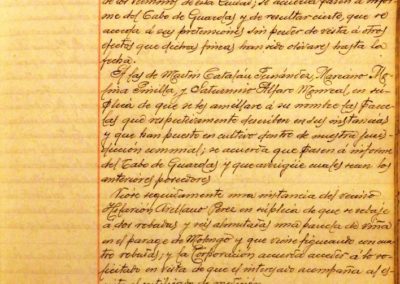 de los terrenos de esta Ciudad, se acuerda pasen á infor-
me del Cabo de Guardas y de resultar cierto, que se
acceda á sus pretensiones sin perder de vista á otros
efectos que dichas fincas han sido olivares hasta la
fecha.
El las de Martin Catalán Fernández, Mariano
Pinilla y Saturnino Alfaro Monreal, en sú-
plica de que se les amillare á su nombre las parce-
las que respectivamente describen en sus instancias
y que han puesto en cultivo dentro de nuestra juris-
dicción comunal; se acuerda que pasen á informe
del Cabo de Guardas y que averigüe cuales sean los
anteriores poseedores
Vióse seguidamente una instancia del vecino
Hilarión Arellano Perez en súplica de que se rebaje
á dos robadas y seis almutadas una parcela de viña
en el parage de Molongo y que viene figurando con cua-
tro robadas; y la Corporación acuerda acceder á lo so-
licitado en vista de que el interesado acompaña al es-